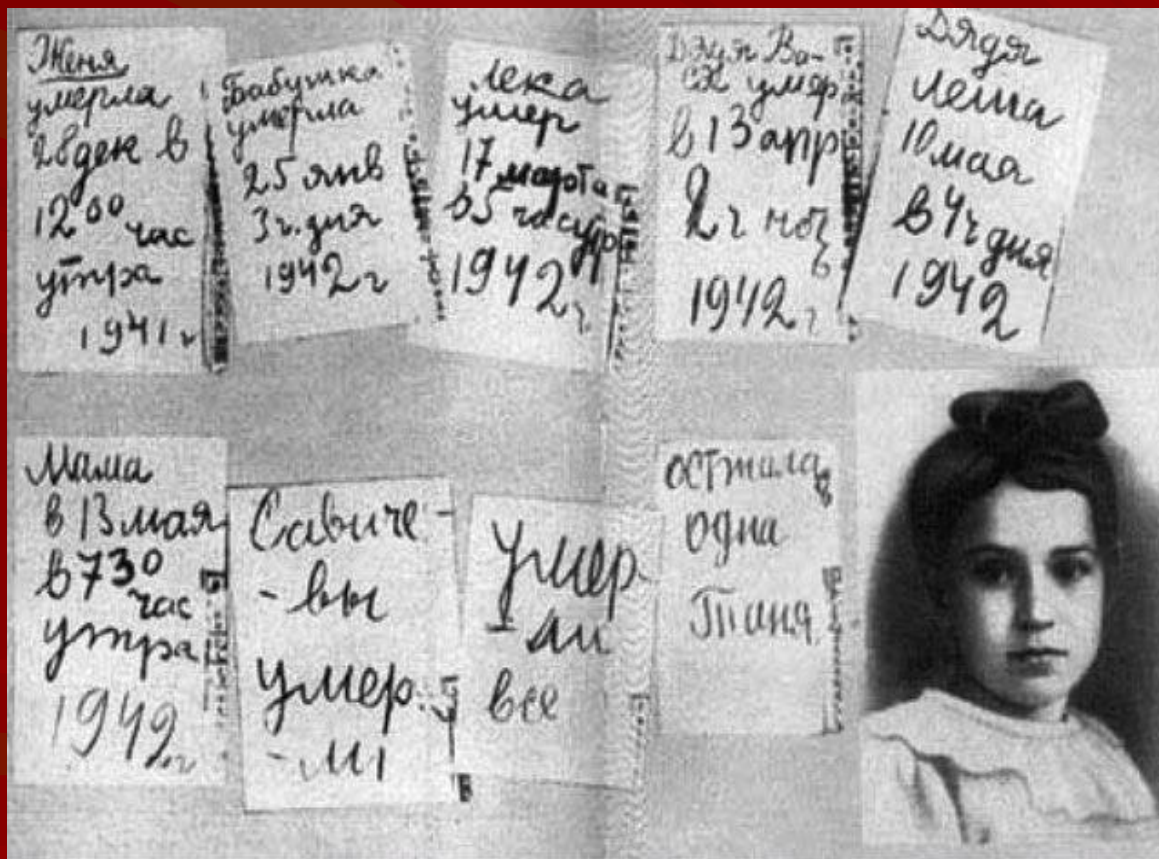 Женя
умерла
28 дек в
12 00 час
утра
1941 г
Бабушка
умерла
25 янв
3 ч. дня
1942 г
Лека
умер
17 марта
в 5 час утр
1942 г
Дядя Ва-
ся умер
в 13 апр
2 ч ноч
1942 г
Дядя
Леша
10 мая
в 4 ч дня
1942
Мама
в 13 мая
в 7 30
час
утра
1942 г
Савиче-
-вы
умер
-ли
Умер
-ли
все
Осталась
одна
Таня